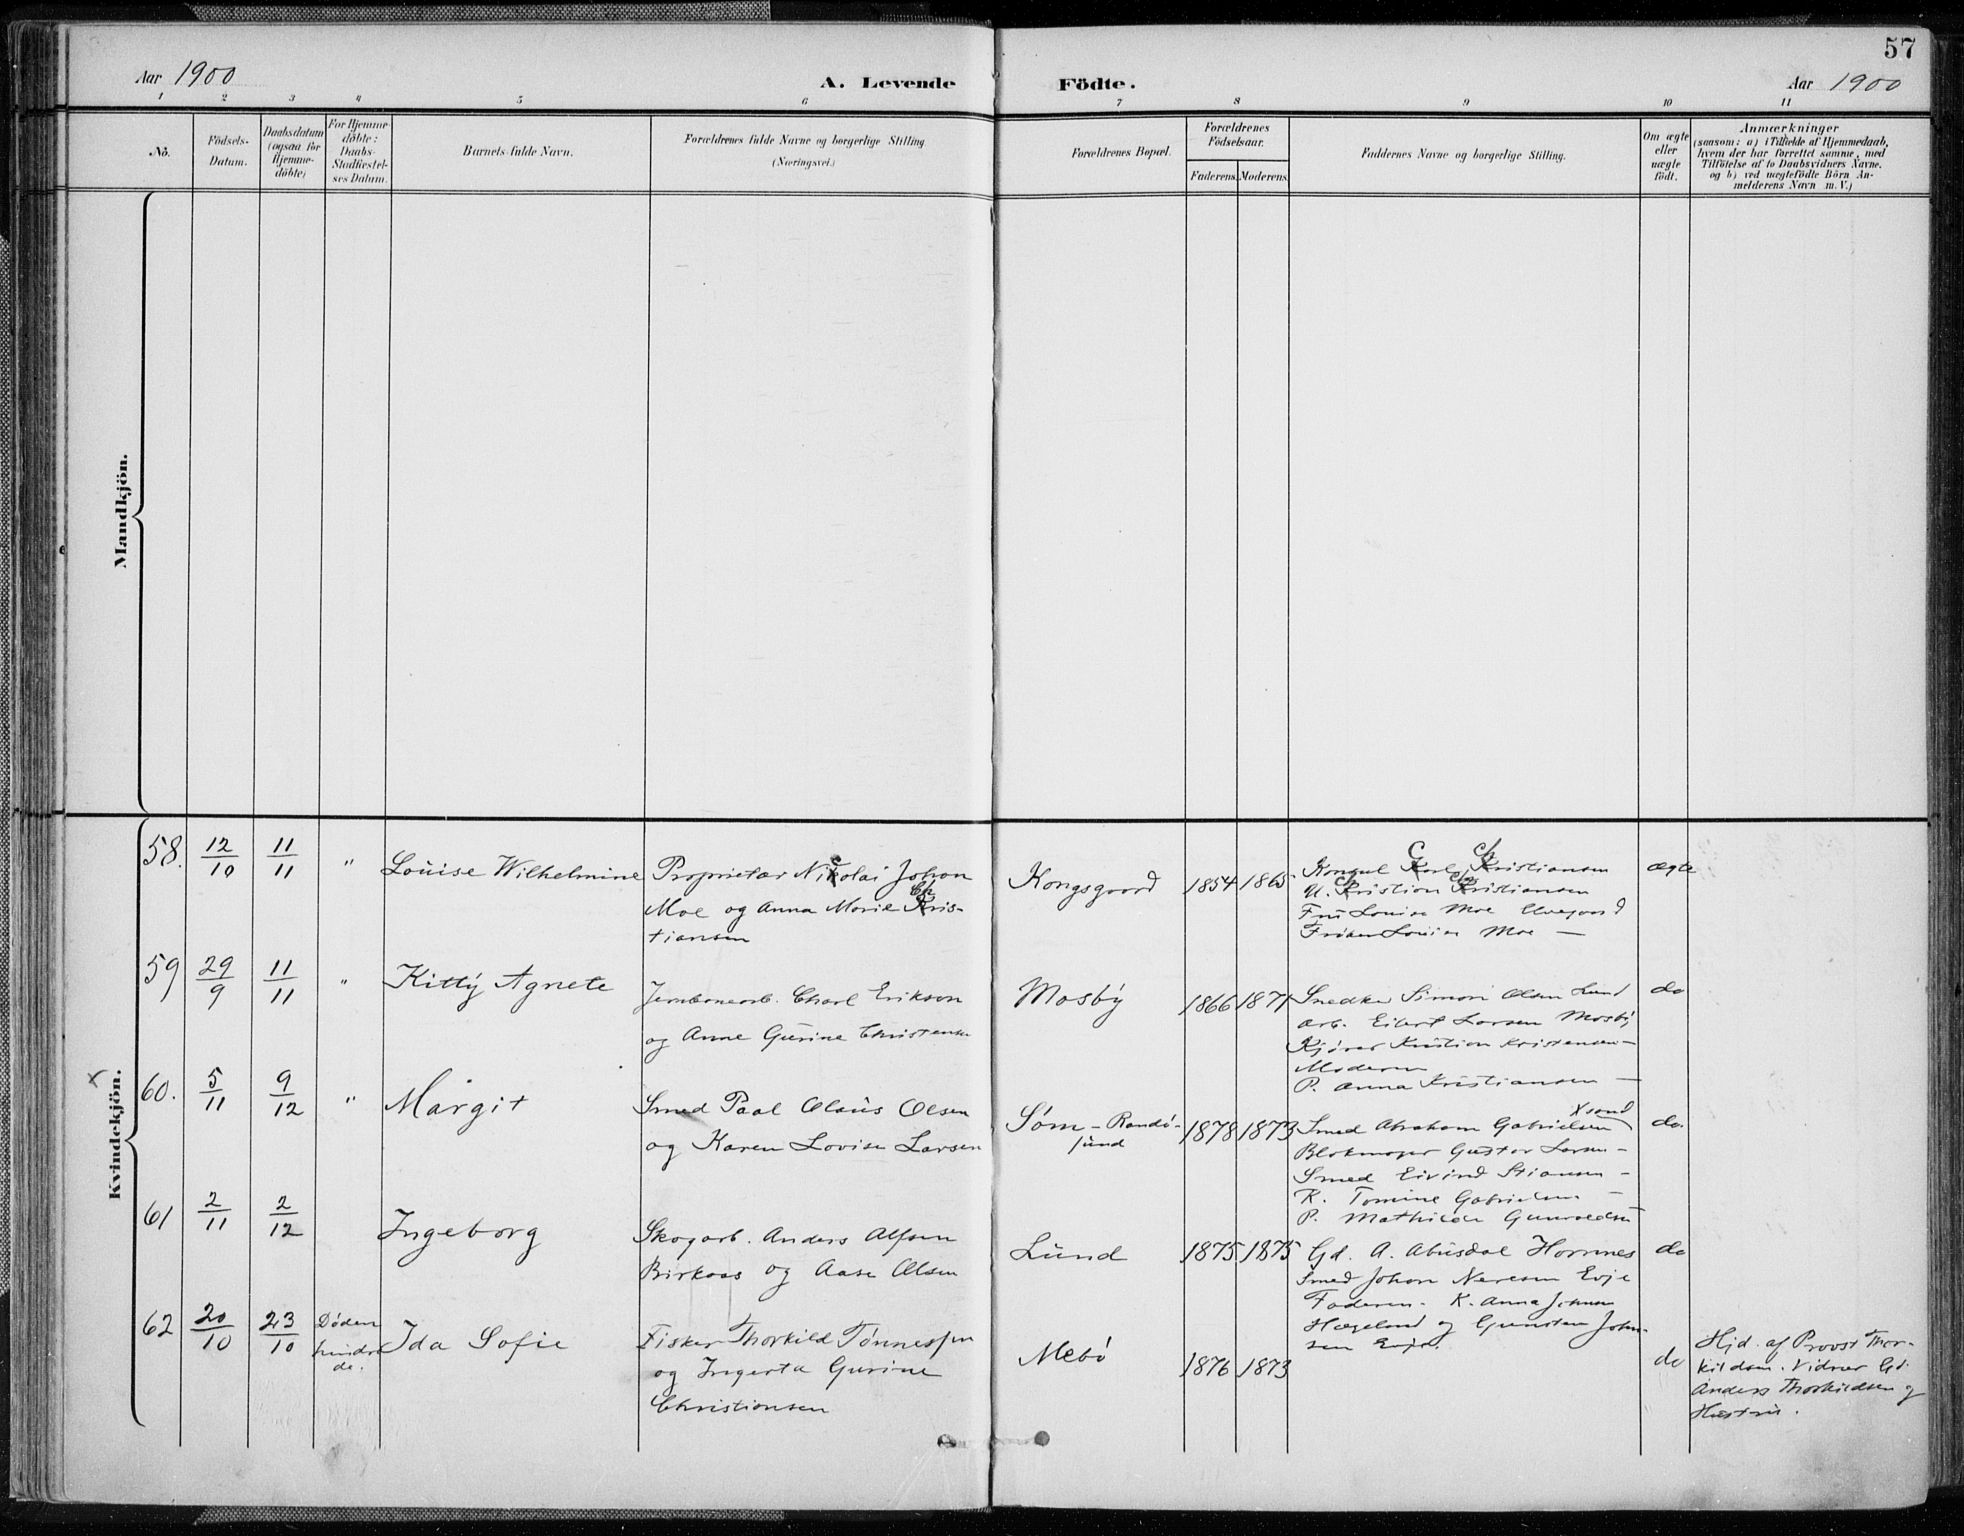 57
Aar 1900
A. Levende Födte.
Aar 1900
1 2 3 4 5 6 7 8 9 10 11
No.
Födsels-
Datum.
Daabsdatum
(ogsaa for
Hjemme-
döbte)
For Hjemme-
döbte:
Daabs-
Stadfæstel-
ses Datum.
Barnets fulde Navn.
Forældrenes fulde Navne og borgerlige Stilling
(Næringsvei.)
Forældrenes Bopæl.
Forældrenes
Födselsaar.
Faderens. Moderens.
Faddernes Navne og borgerlige Stilling.
Om ægte
eller
uægte
födt.
Anmærkninger
(saasom: a) i Tilfælde af Hjemmedaab,
hvem der har forrettet samme, med
Tilföielse af to Daabsvidners Navne.
og b) ved uægtefödte Börn An-
melderens Navn m. V.)
Mandkjön.
Kvindekjön.
58. 12/10 11/11 " Louise Wilhelmine
Proprietær Nicolai Johan
Moe og Anna Marie Chris-
tiansen
Kongsgaard 1854 1865
Konsul Carl Christiansen
U. Christian Christiansen
Fru Louise Moe
Frøken Louise Moe —
ægte
59 29/9 11/11 " Kitty Agnete
Jernbanearb. Charl Erikson
og Anne Gurine Christensen
Mosby 1866 1871
Snedker Simon Olsen Lund
Arb. Eilert Larsen Mosby
Kjører Kristian Kristensen —
Moderen
P. Anna Kristiansen —
do
60. 5/11 9/12 " Margit
Smed Paal Olaus Olsen
og Karen Lovise Larsen
Søm - Randø-
sund
1878 1873
Smed Abraham Gabrielsen Xsand
Blokmager Gustav Larsen —
Smed Eivind Stiansen —
K. Tomine Gabrielsen —
P. Mathilde Gunvaldsen
do.
61 2/11 2/12 Ingeborg
Skogarb. Anders Alfsen
Birkaas og Aase Olsen
Lund 1875 1875
Gd. A. Abusdal Hornnes
Smed Johan Neresen Evje
Faderen. K. Anna Johnsen
Hægeland og Gunsten John-
sen Evje.
do
62 20/10 23/10
Døden
hindre
de.
Ida Sofie
Fisker Thorkild Tønnessen
og Ingerta Gurine
Christiansen
Mebø 1876 1873
do
Hjd. af Provst Thor-
kildsen. Vidner Gd.
Anders Thorkildsen og
Hustru.